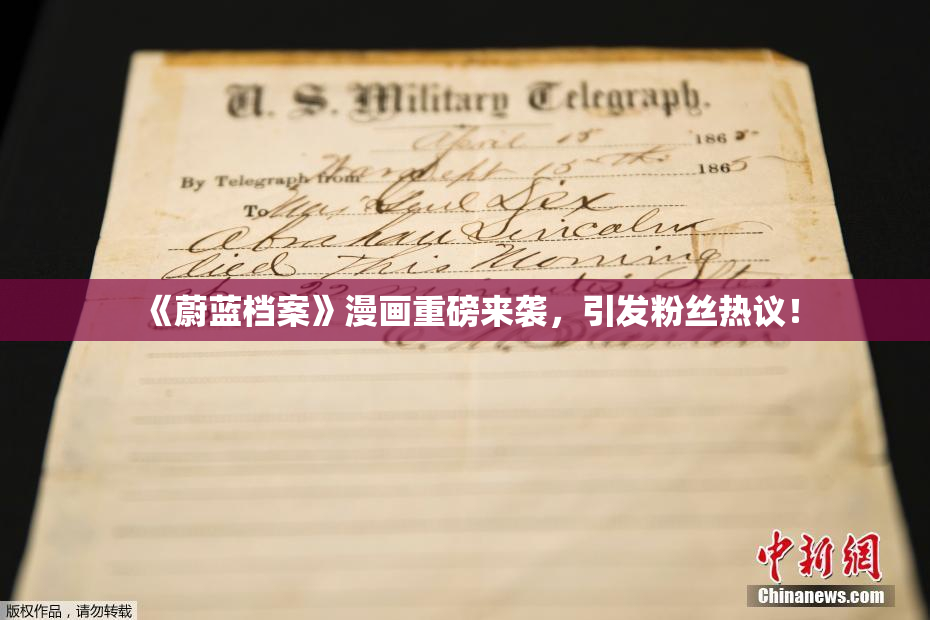 U. S. Military Telegraph.
April 15 1865
By Telegraph from War Dept 15th 1865
To Maj Genl Dix
Abraham Lincoln
died This Morning
22 minutes after
《蔚蓝档案》漫画重磅来袭，引发粉丝热议！
E. M. Stanton
中新网
Chinanews.com
版权作品，请勿转载